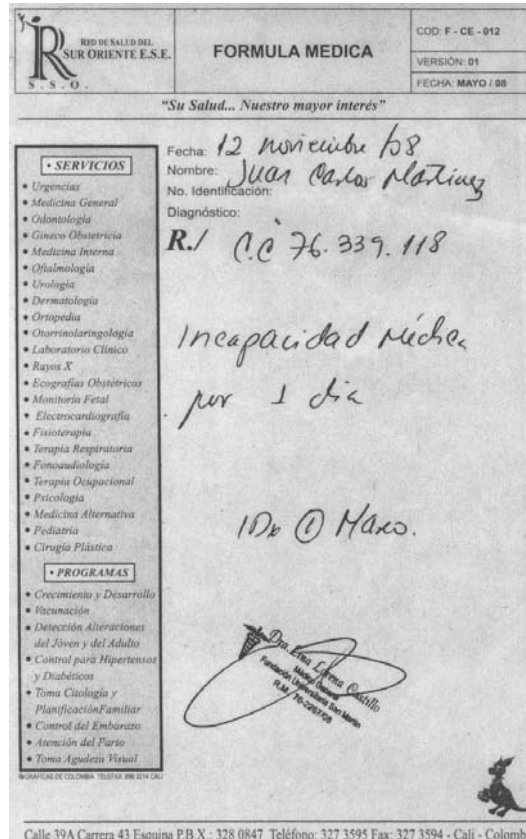 RED DE SALUD DEL
SUR ORIENTE E.S.E.
R
S. S. O.
FORMULA MEDICA
COD: F - CE - 012
VERSIÓN: 01
FECHA: MAYO / 08
"Su Salud... Nuestro mayor interés"
• SERVICIOS
• Urgencias
• Medicina General
• Odontología
• Gineco Obstetricia
• Medicina Interna
• Oftalmología
• Urología
• Dermatología
• Ortopedia
• Otorrinolaringología
• Laboratorio Clínico
• Rayos X
• Ecografías Obstétricas
• Monitoria Fetal
• Electrocardiografía
• Fisioterapia
• Terapia Respiratoria
• Fonoaudiología
• Terapia Ocupacional
• Psicología
• Medicina Alternativa
• Pediatría
• Cirugía Plástica
• PROGRAMAS
• Crecimiento y Desarrollo
• Vacunación
• Detección Alteraciones
del Jóven y del Adulto
• Control para Hipertensos
y Diabéticos
• Toma Citología y
PlanificaciónFamiliar
• Control del Embarazo
• Atención del Parto
• Toma Agudeza Visual
Fecha: 12 noviembre /08
Nombre: Juan Carlos Martinez
No. Identificación:
Diagnóstico:
R./ C.C 76.339.118
Incapacidad Médica
por 1 dia
IDx ① Mareo.
Dra. Erna Lorena Castillo
Médico General
Fundación Universitaria San Martín
R.M.
GRAFICAS DE COLOMBIA TELEFAX
Calle 39A Carrera 43 Esquina P.B.X.: 328 0847 Teléfono: 327 3595 Fax: 327 3594 - Cali - Colomb